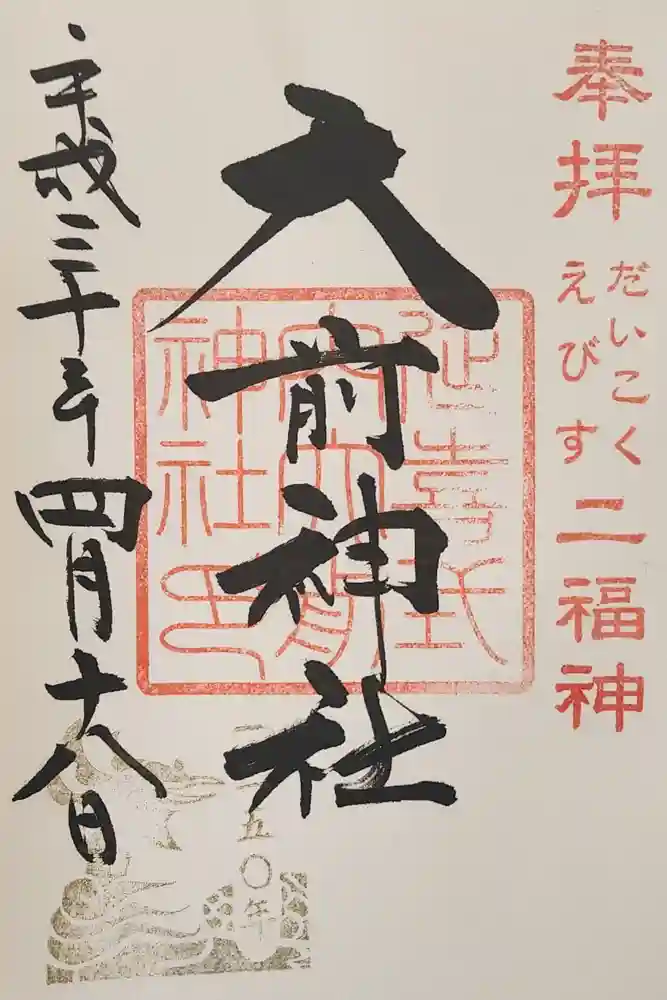 奉拝
だいこく
えびす
二福神
延喜式
内大前
神社印
大前神社
平成三十年四月十八日
五〇年